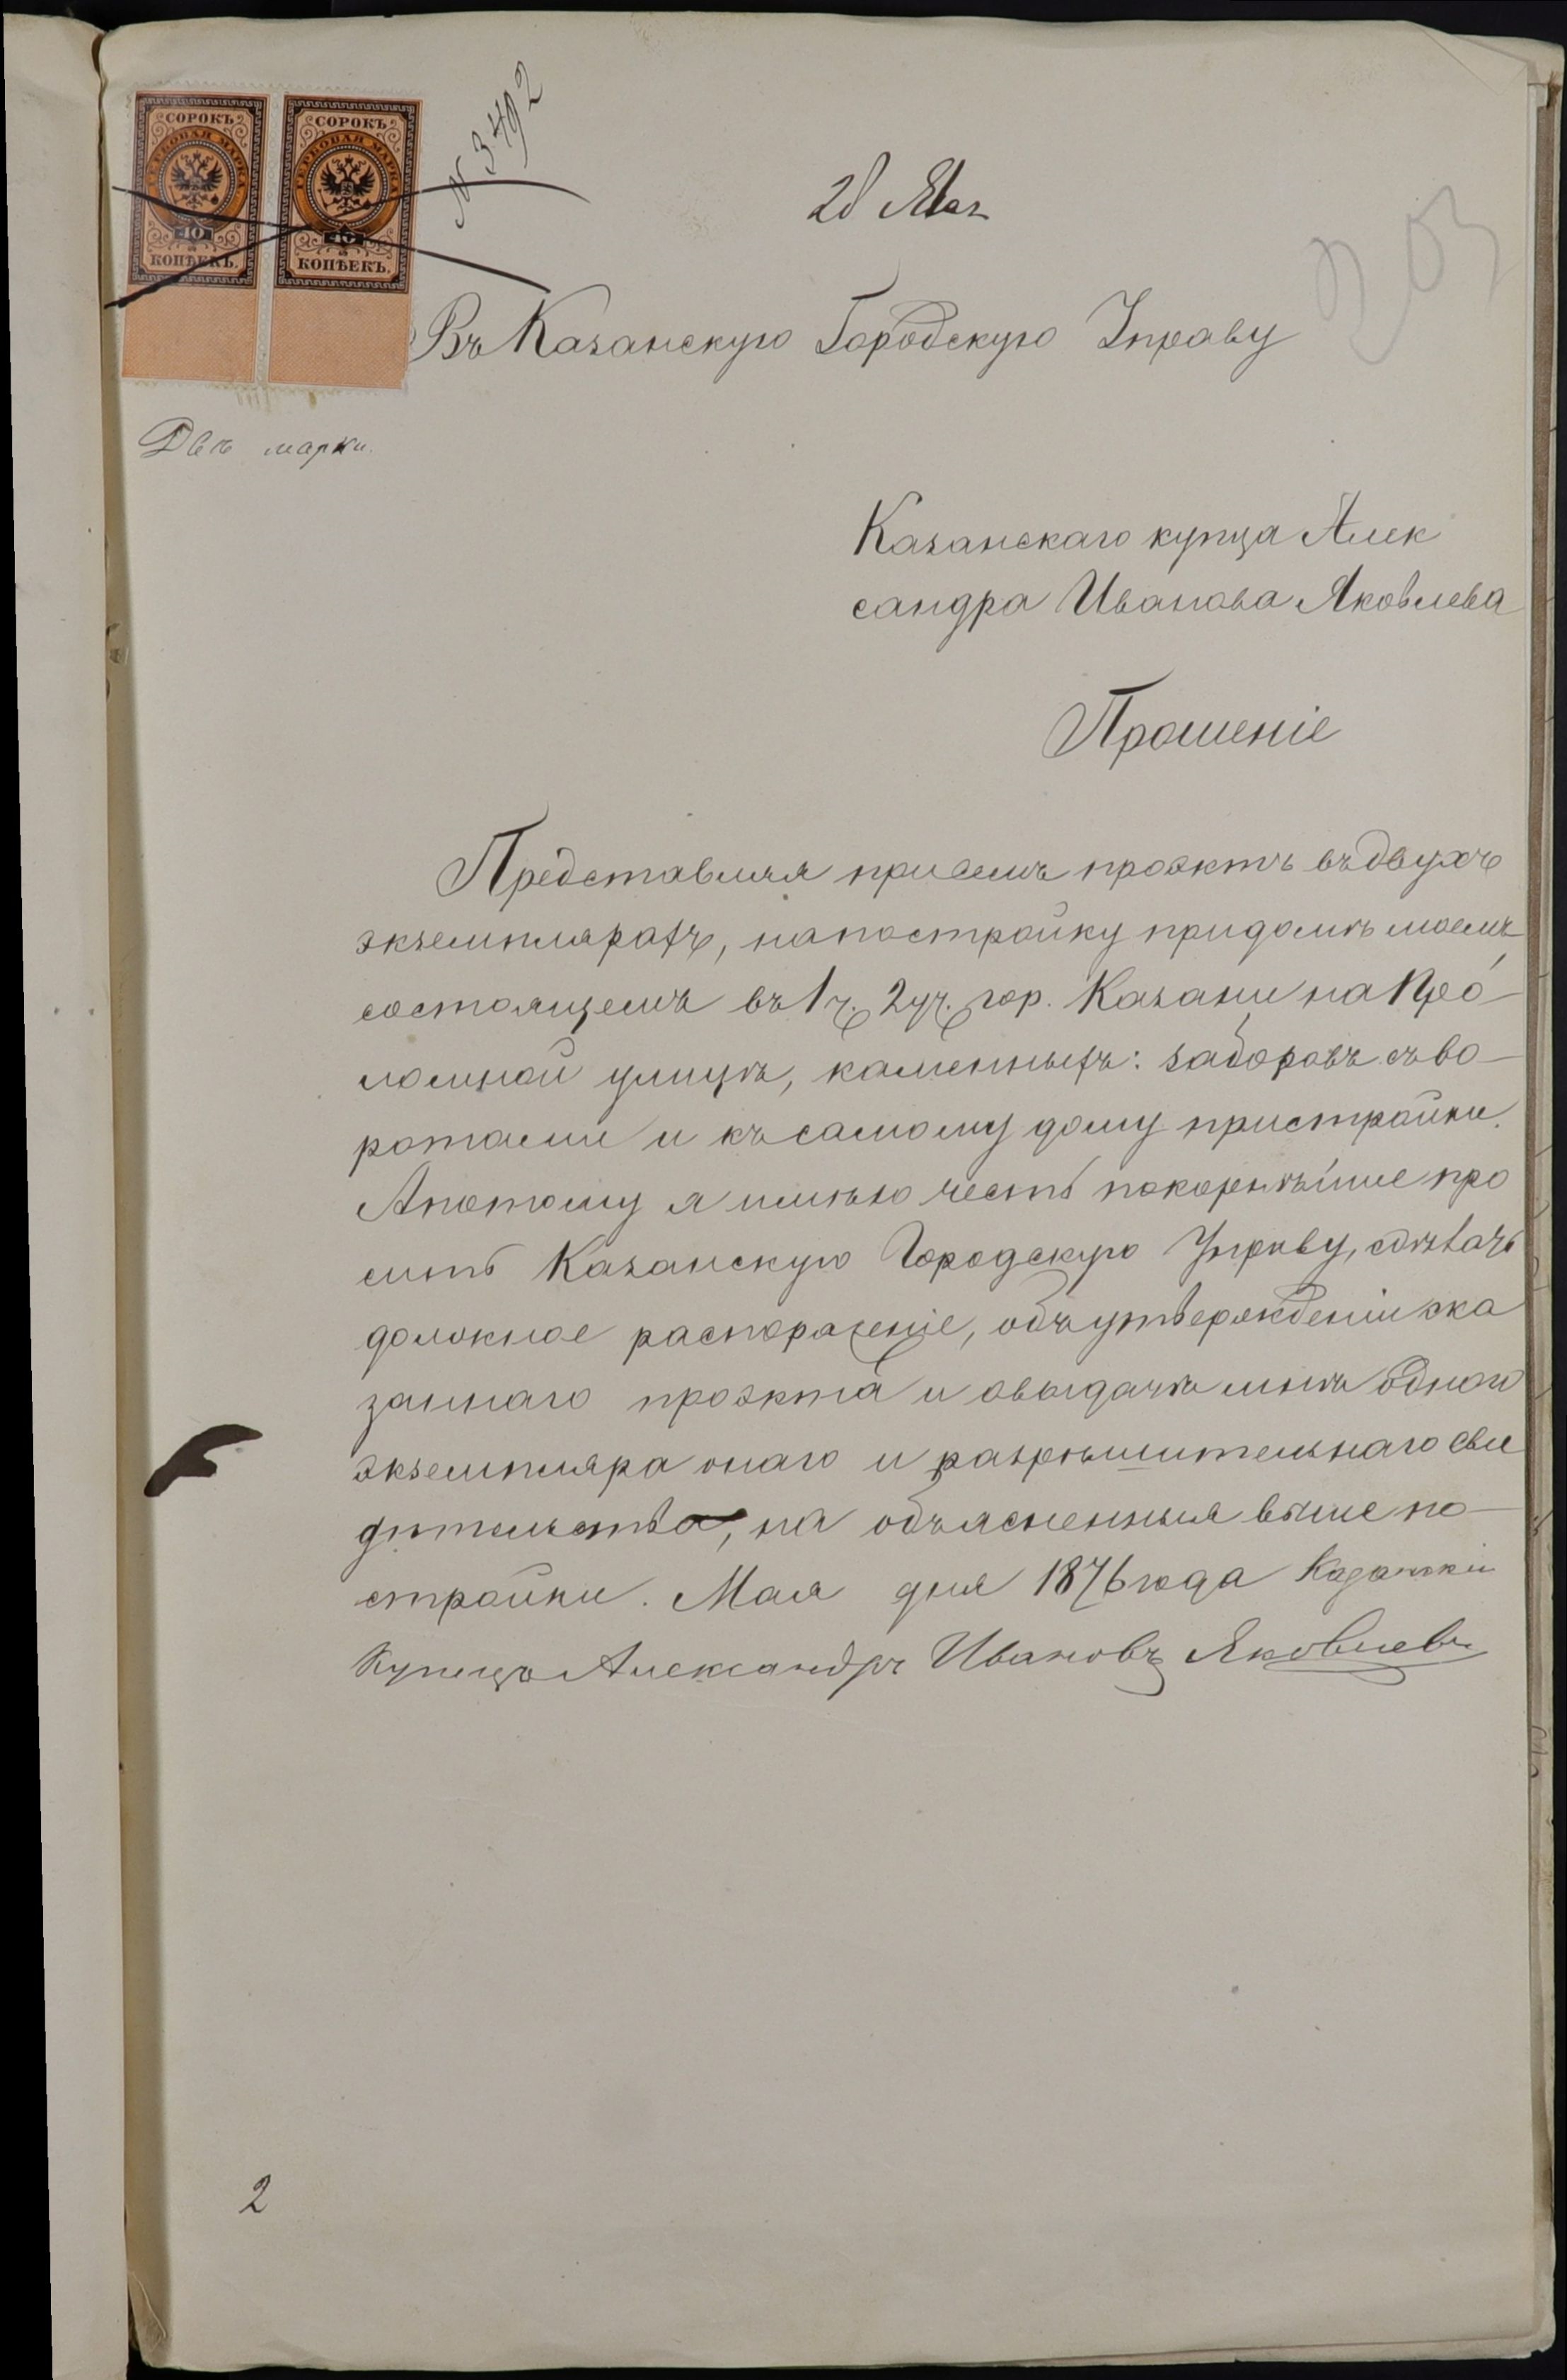 СОРОКЪ СОРОКЪ
ГЕРБОВАЯ МАРКА ГЕРБОВАЯ МАРКА
40 40
КОПѢЕКЪ. КОПѢЕКЪ.
N 3492
28 Мая
Въ Казанскую Городскую Управу
Двѣ марки.
Казанскаго купца Алек
сандра Иванова Яковлева
Прошеніе
Представляя присемъ проэктъ въ двухъ
экземплярахъ, на постройку при домѣ моемъ
состоящемъ въ 1 ч. 2 уч. гор. Казани на Про-
ломной улицѣ, каменныхъ: заборовъ съ во-
ротами и къ самому дому пристройки.
А потому я имѣю честь покорнѣйше про
сить Казанскую Городскую Управу, сдѣлать
должное распоряженіе, объ утвержденіи ска
заннаго проэкта и о выдачѣ мнѣ одного
экземпляра онаго и разрѣшительнаго сви
дѣтельства, на объясненныя выше по-
стройки. Мая дня 1876 года Казанскій
Купецъ Александръ Ивановъ Яковлевъ
2